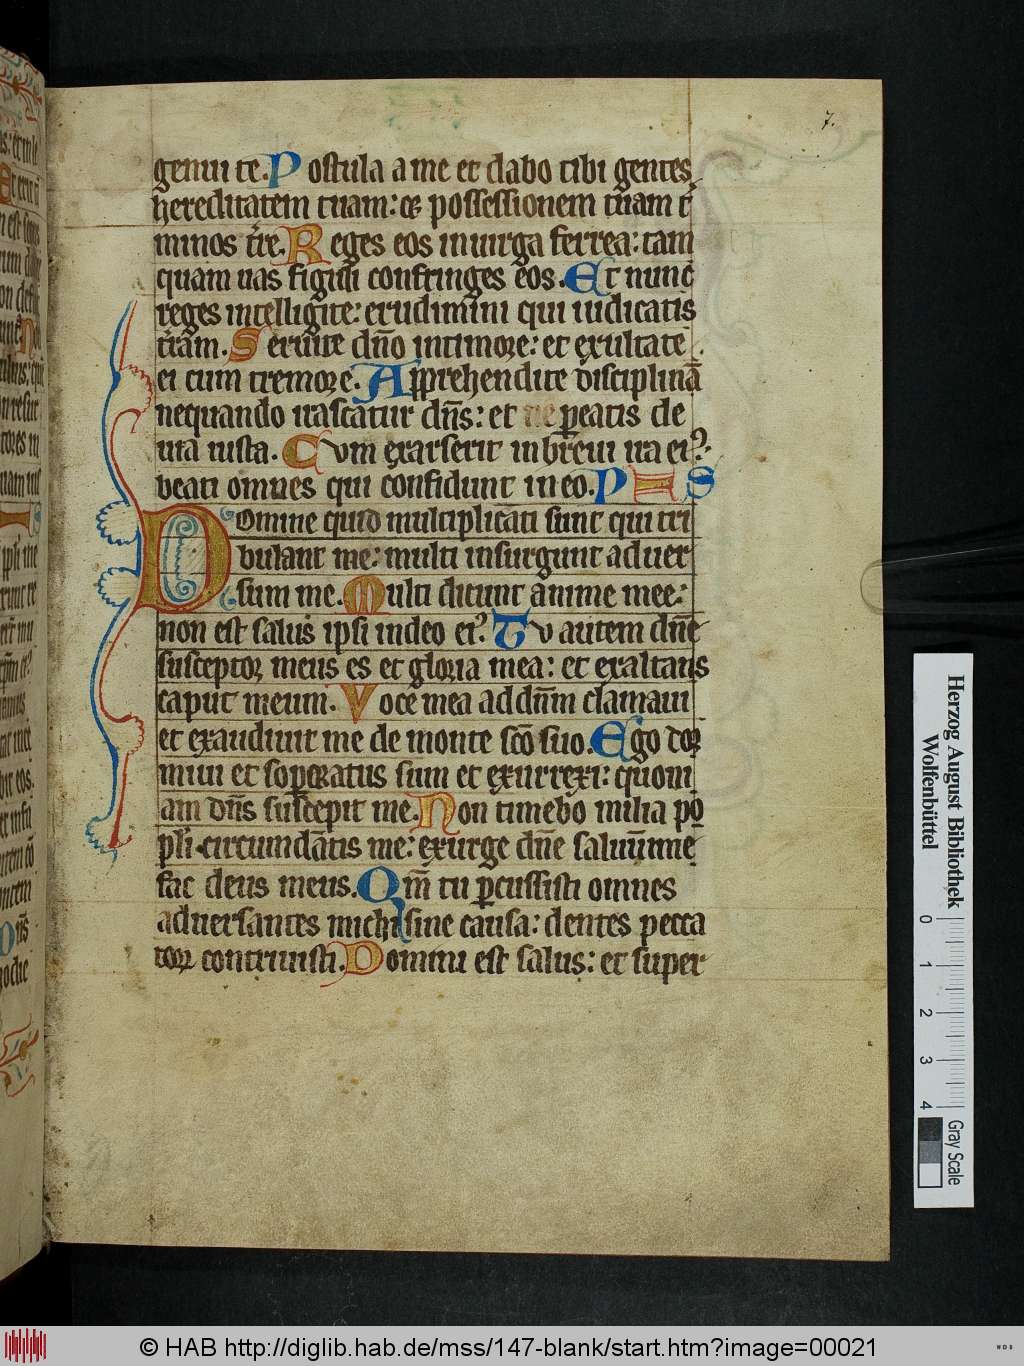 7.
genui te. Postula a me et dabo tibi gentes
hereditatem tuam: et possessionem tuam t̾
minos t̾re. Reges eos in uirga ferrea: tam
quam uas figuli confringes eos. Et nunc
reges intelligite: erudimini qui iudicatis
t̾ram. Seruite dn̄o in timore: et exultate
ei cum tremore. Apprehendite disciplinā
nequando irascatur dn̄s: et ne ꝑeatis de
uia iusta. Cvm exarserit in breui ira ei᷒?
beati omnes qui confidunt in eo. PAS
Domine quid multiplicati sunt qui tri
bulant me: multi insurgunt aduer
sum me. Multi dicunt anime mee:
non est salus ipsi in deo ei᷒? Tv autem dn̄e
susceptor meus es et gloria mea: et exaltans
caput meum. Voce mea ad dn̄m clamaui
et exaudiuit me de monte scō suo. Ego dor
miui et soporatus sum et exurrexi: quoni
am dn̄s suscepit me. Non timebo milia po
pli circumdātis me: exurge dn̄e saluū me
fac deus meus. Qm̄ tu ꝑcussisti omnes
aduersantes michi sine causa: dentes pecca
toꝝ contriuisti. Domini est salus: et super
Herzog August Bibliothek
Wolfenbüttel
0 1 2 3 4
Gray Scale
© HAB http://diglib.hab.de/mss/147-blank/start.htm?image=00021